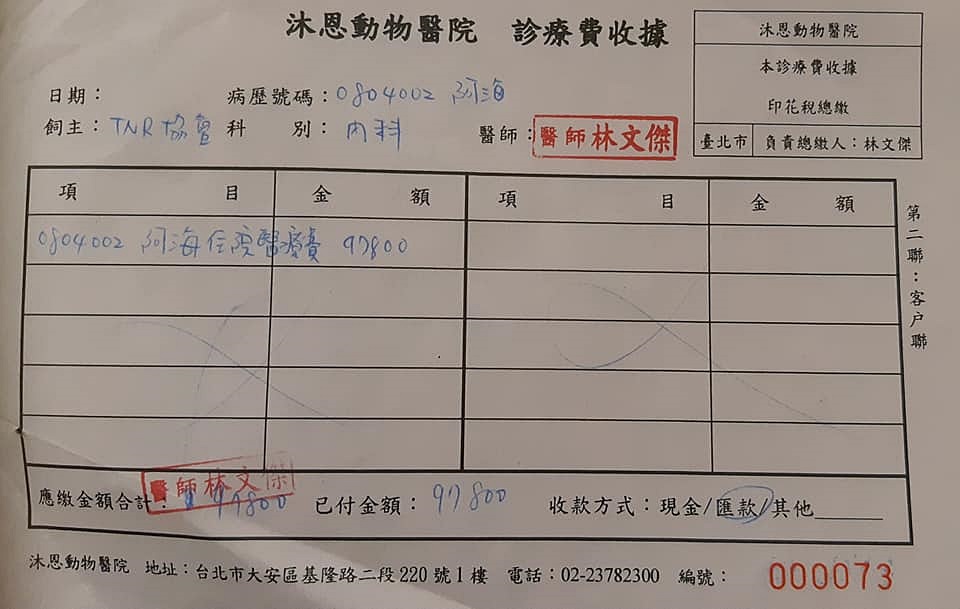 沐恩動物醫院 診療費收據
沐恩動物醫院
本診療費收據
印花稅總繳
臺北市 負責總繳人：林文傑
日期： 病歷號碼：0804002 阿海
飼主：TNR協會 科 別：內科 醫師：醫師林文傑
項 目 金 額 項 目 金 額
0804002 阿海住院醫療費 97800
第二聯：客戶聯
醫師林文傑
應繳金額合計：97800 已付金額：97800 收款方式：現金/匯款/其他______
沐恩動物醫院 地址：台北市大安區基隆路二段220號1樓 電話：02-23782300 編號：000073